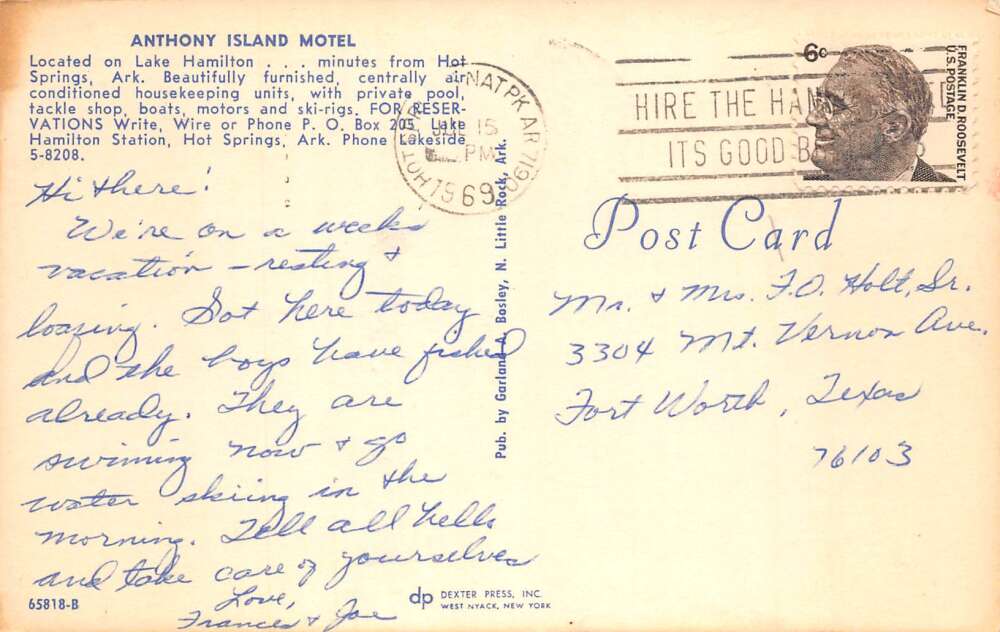 ANTHONY ISLAND MOTEL
Located on Lake Hamilton . . . minutes from Hot
Springs, Ark. Beautifully furnished, centrally air
conditioned housekeeping units, with private pool,
tackle shop, boats, motors and ski-rigs. FOR RESER-
VATIONS Write, Wire or Phone P. O. Box 205, Lake
Hamilton Station, Hot Springs, Ark. Phone Lakeside
5-8208.
Hi there!
We're on a weeks
vacation - resting +
loafing. Got here today
and the boys have fished
already. They are
swimming now + go
water skiing in the
morning. Tell all hello
and take care of yourselves
Love,
Frances + Joe
65818-B
Pub. by Garland A. Bosley, N. Little Rock, Ark.
dp DEXTER PRESS, INC.
WEST NYACK, NEW YORK
NAT PK AR 71901
15
PM
1969
HIRE THE
ITS GOOD
6c
FRANKLIN D. ROOSEVELT
U.S. POSTAGE
Post Card
Mr. + Mrs. F.O. Holt, Sr.
3304 Mt. Vernon Ave.
Fort Worth, Texas
76103